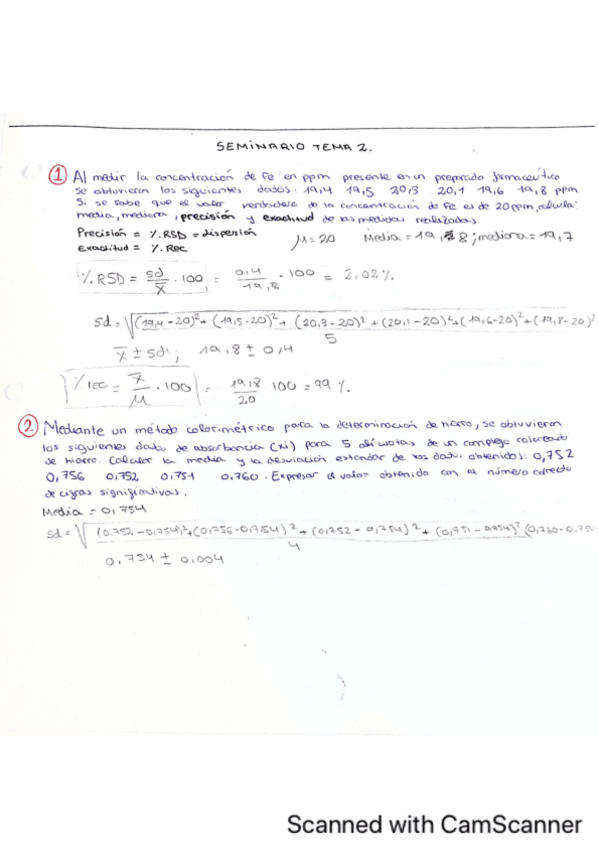 SEMINARIO TEMA 2.
① Al medir la concentración de Fe en ppm presente en un preparado farmaceútico
se obtuvieron los siguientes datos: 19,4 19,5 20,3 20,1 19,6 19,8 ppm
Si se sabe que el valor verdadero de la concentración de Fe es de 20 ppm, calcula:
media, mediana, precisión y exactitud de las medidas realizadas
Precisión = %.RSD = dispersión μ = 20 Media = 19,8; mediana = 19,7
Exactitud = %. Rec
%.RSD = sd/x̄ · 100 = 0,4/19,8 · 100 = 2,02%.
sd = √((19,4-20)²+(19,5-20)²+(20,3-20)²+(20,1-20)²+(19,6-20)²+(19,8-20)²/5
x̄ ± sd; 19,8 ± 0,4
%rec = x̄/μ · 100 = 19,8/20 100 = 99%.
② Mediante un método colorimétrico para la determinación de hierro, se obtuvieron
los siguientes datos de absorbancia (xi) para 5 alícuotas de un complejo coloreado
de hierro. Calcular la media y la desviación estandar de los datos obtenidos: 0,752
0,756 0,752 0,751 0,760. Expresar el valor obtenido con el número correcto
de cifras significativas.
Media = 0,754
sd = √(0,752-0,754)²+(0,756-0,754)²+(0,752-0,754)²+(0,751-0,754)² (0,760-0,75/4
0,754 ± 0,004
Scanned with CamScanner